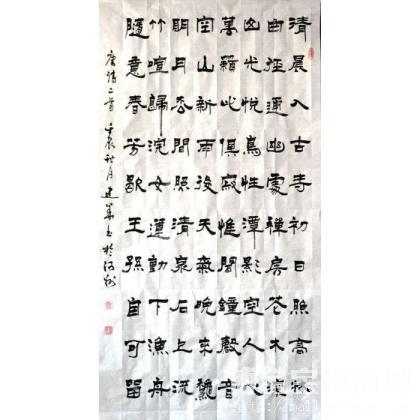 清晨入古寺初日照高林
曲徑通幽處禪房花木深
山光悅鳥性潭影空人心
萬籟此俱寂惟聞鐘磬音
空山新雨後天氣晚来秋
明月松間照清泉石上流
竹喧歸浣女蓮動下漁舟
隨意春芳歇王孫自可留
唐詩二首 壬辰秋月建華書於